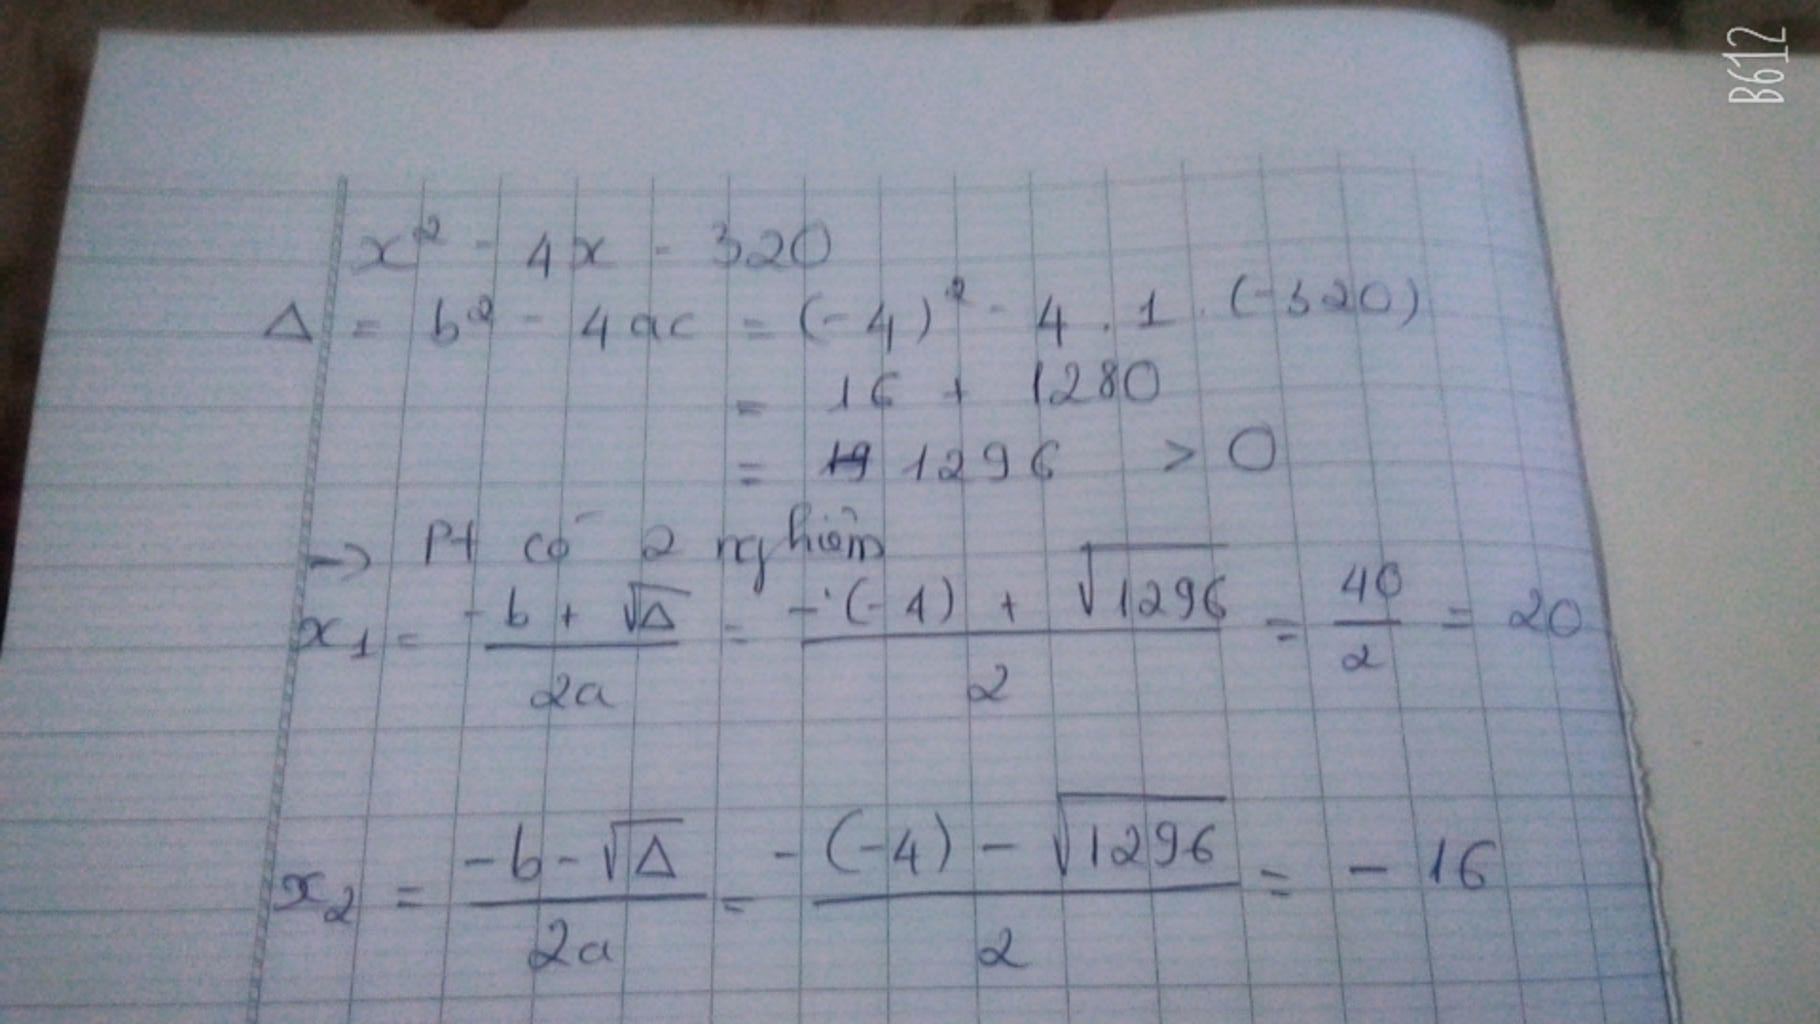 x² - 4x - 320
Δ = b² - 4ac = (-4)² - 4 . 1 . (-320)
= 16 + 1280
= 1296 > 0
→ Pt có 2 nghiệm
x₁ = (-b + √Δ)/2a = (-(-4) + √1296)/2 = 40/2 = 20
x₂ = (-b - √Δ)/2a = (-(-4) - √1296)/2 = - 16
B612